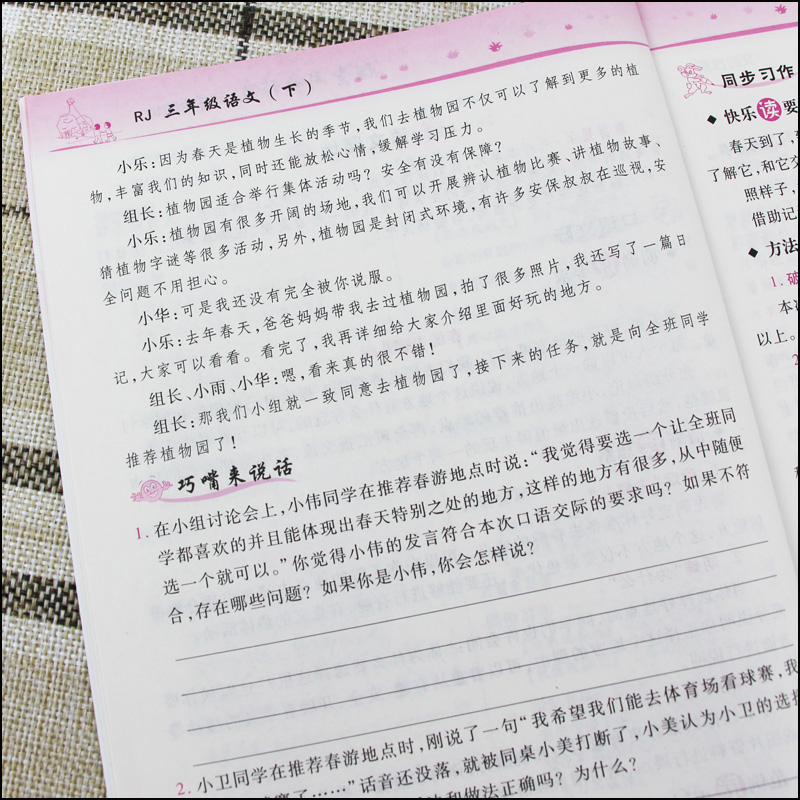 RJ 三年级语文(下)
小乐:因为春天是植物生长的季节,我们去植物园不仅可以了解到更多的植
物,丰富我们的知识,同时还能放松心情,缓解学习压力。
组长:植物园适合举行集体活动吗?安全有没有保障?
小乐:植物园有很多开阔的场地,我们可以开展辨认植物比赛、讲植物故事、
猜植物字谜等很多活动,另外,植物园是封闭式环境,有许多安保叔叔在巡视,安
全问题不用担心。
小华:可是我还没有完全被你说服。
小乐:去年春天,爸爸妈妈带我去过植物园,拍了很多照片,我还写了一篇日
记,大家可以看看。看完了,我再详细给大家介绍里面好玩的地方。
组长、小雨、小华:嗯,看来真的很不错!
组长:那我们小组就一致同意去植物园了,接下来的任务,就是向全班同学
推荐植物园了!
巧嘴来说话
1. 在小组讨论会上,小伟同学在推荐春游地点时说:“我觉得要选一个让全班同
学都喜欢的并且能体现出春天特别之处的地方,这样的地方有很多,从中随便
选一个就可以。”你觉得小伟的发言符合本次口语交际的要求吗?如果不符
合,存在哪些问题?如果你是小伟,你会怎样说?
2. 小卫同学在推荐春游地点时,刚说了一句“我希望我们能去体育场看球赛,我
赛了……”话音还没落,就被同桌小美打断了,小美认为小卫的选择
和做法正确吗?为什么?
同步习作
快乐读要
春天到了,
了解它,和它交
照样子,
借助记
方法
1. 破
本次
以上。
2